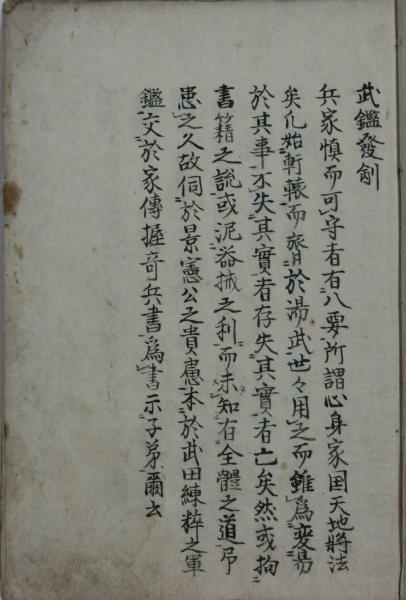 武鑑發劍
兵家慎而可守者有八要所謂心身家国天地將法
矣凢始軒轅而胥於湯武世々用之而雖為変易
於其事不失其實者存失其實者亡矣然或拘
書籍之説或泥器械之利而未知有全體之道予
患之久故伺於景憲公之貴慮本於武田練粹之軍
鑑文於家傳握奇兵書為書示子弟爾云